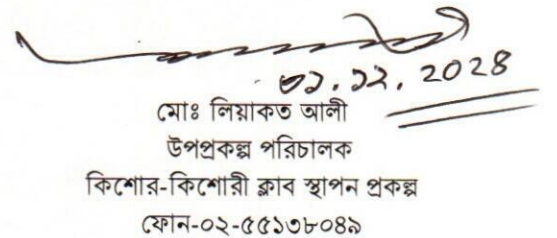 ০১.১২.২০২৪
মোঃ লিয়াকত আলী
উপপ্রকল্প পরিচালক
কিশোর-কিশোরী ক্লাব স্থাপন প্রকল্প
ফোন-০২-৫৫১৩৮০৪৯